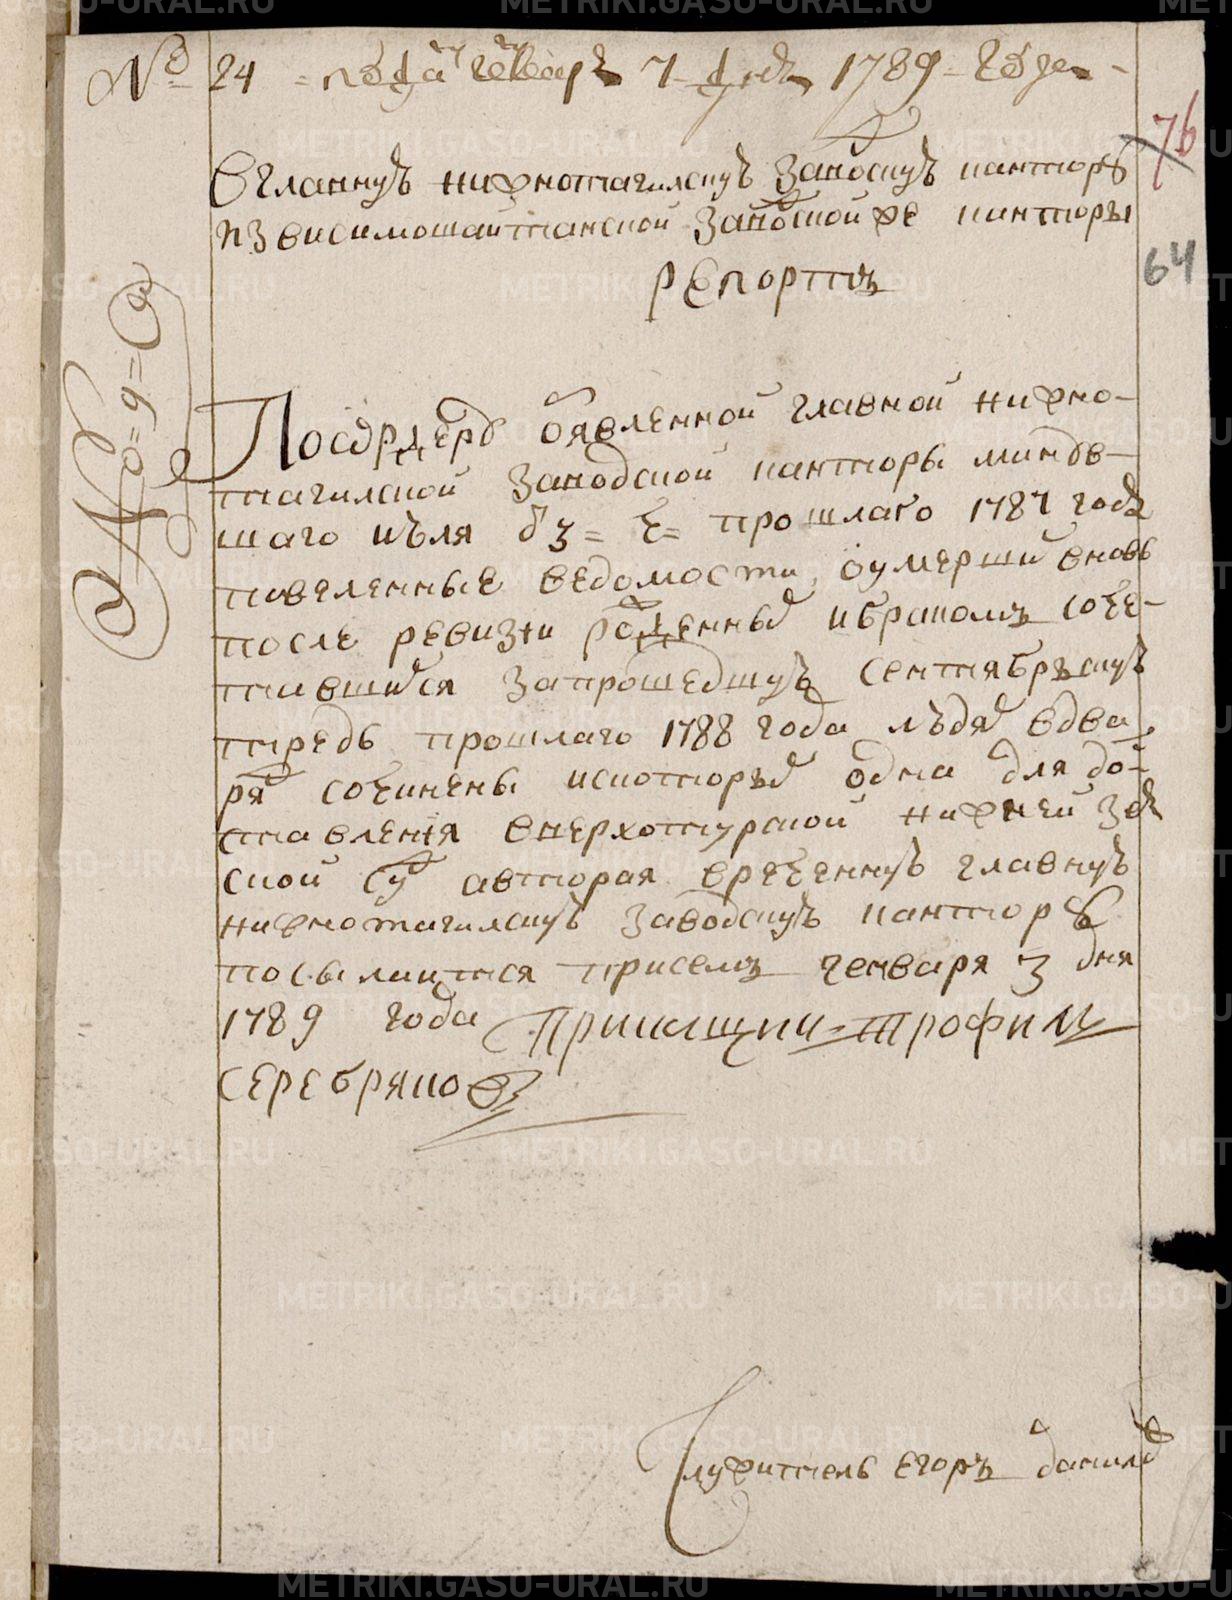 № 24 = подан генваря 7 дня 1789 = года
76
Вглавную нижнотагилскую заводскую кантору
извисимошайтанской заводской же канторы
64
репортъ
№ = 9 =
Поордеру оявленной главной нижно-
тагилской заводской канторы минув-
шаго июля прошлаго 1787 года
повеленные ведомости оумерши вновь
после ревизии рожденны ибракомъ соче-
тавшися запрошедшую сентябрьскую
треть прошлаго 1788 года людя вдва
ря сочинены искоторы одна для до-
ставления вверхотурской нижней зем
ской су автoрая вреченную главную
нижнотагилскую заводскую кантору
посылаитася присемъ генваря 3 дня
1789 года Прикащик Трофим
Серебряковъ
Служитель Егоръ данило
METRIKI.GASO-URAL.RU